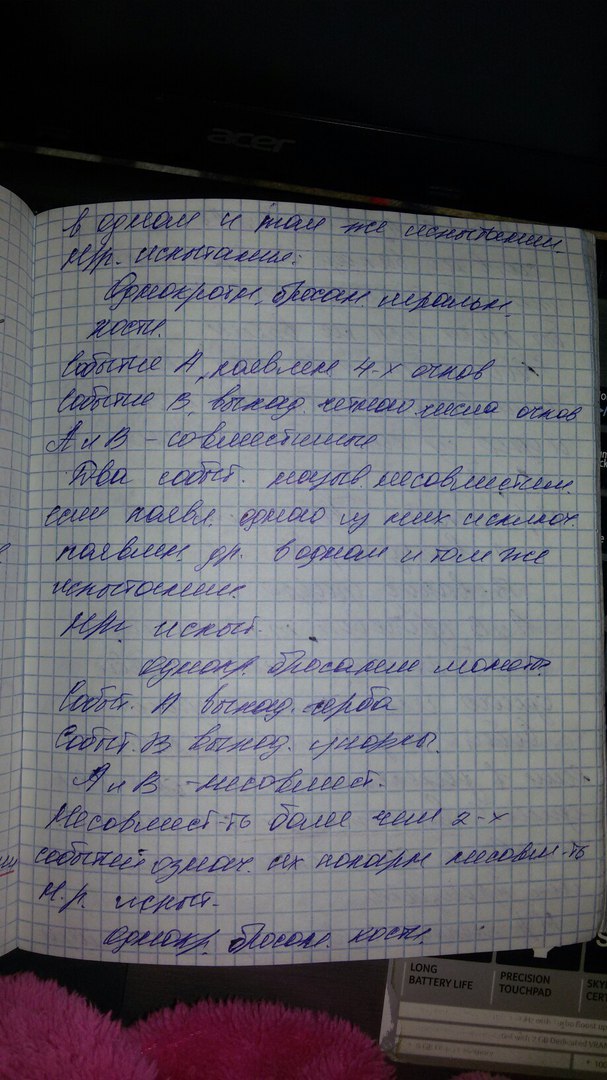 acer
в одном и том же испытании.
Нр. испытание:
Однократн. бросан. игральн.
кости.
Событие А, появлен 4-х очков
Событие В, выпад. четного числа очков
А и В - совместимые
Два событ. назыв несовместим.
если появл. одного из них исключ.
появлен. др. в одном и том же
испытании.
Нр. испыт.
однокр. бросание монеты.
Событ. А выпад. герба
Событ. В выпад. цифры.
А и В - несовмест.
Несовмест-ть более чем 2-х
событий означ. их попарн несовм-ть
Н.р. испыт.
однокр. бросан. кости.
LONG
BATTERY LIFE
PRECISION
TOUCHPAD